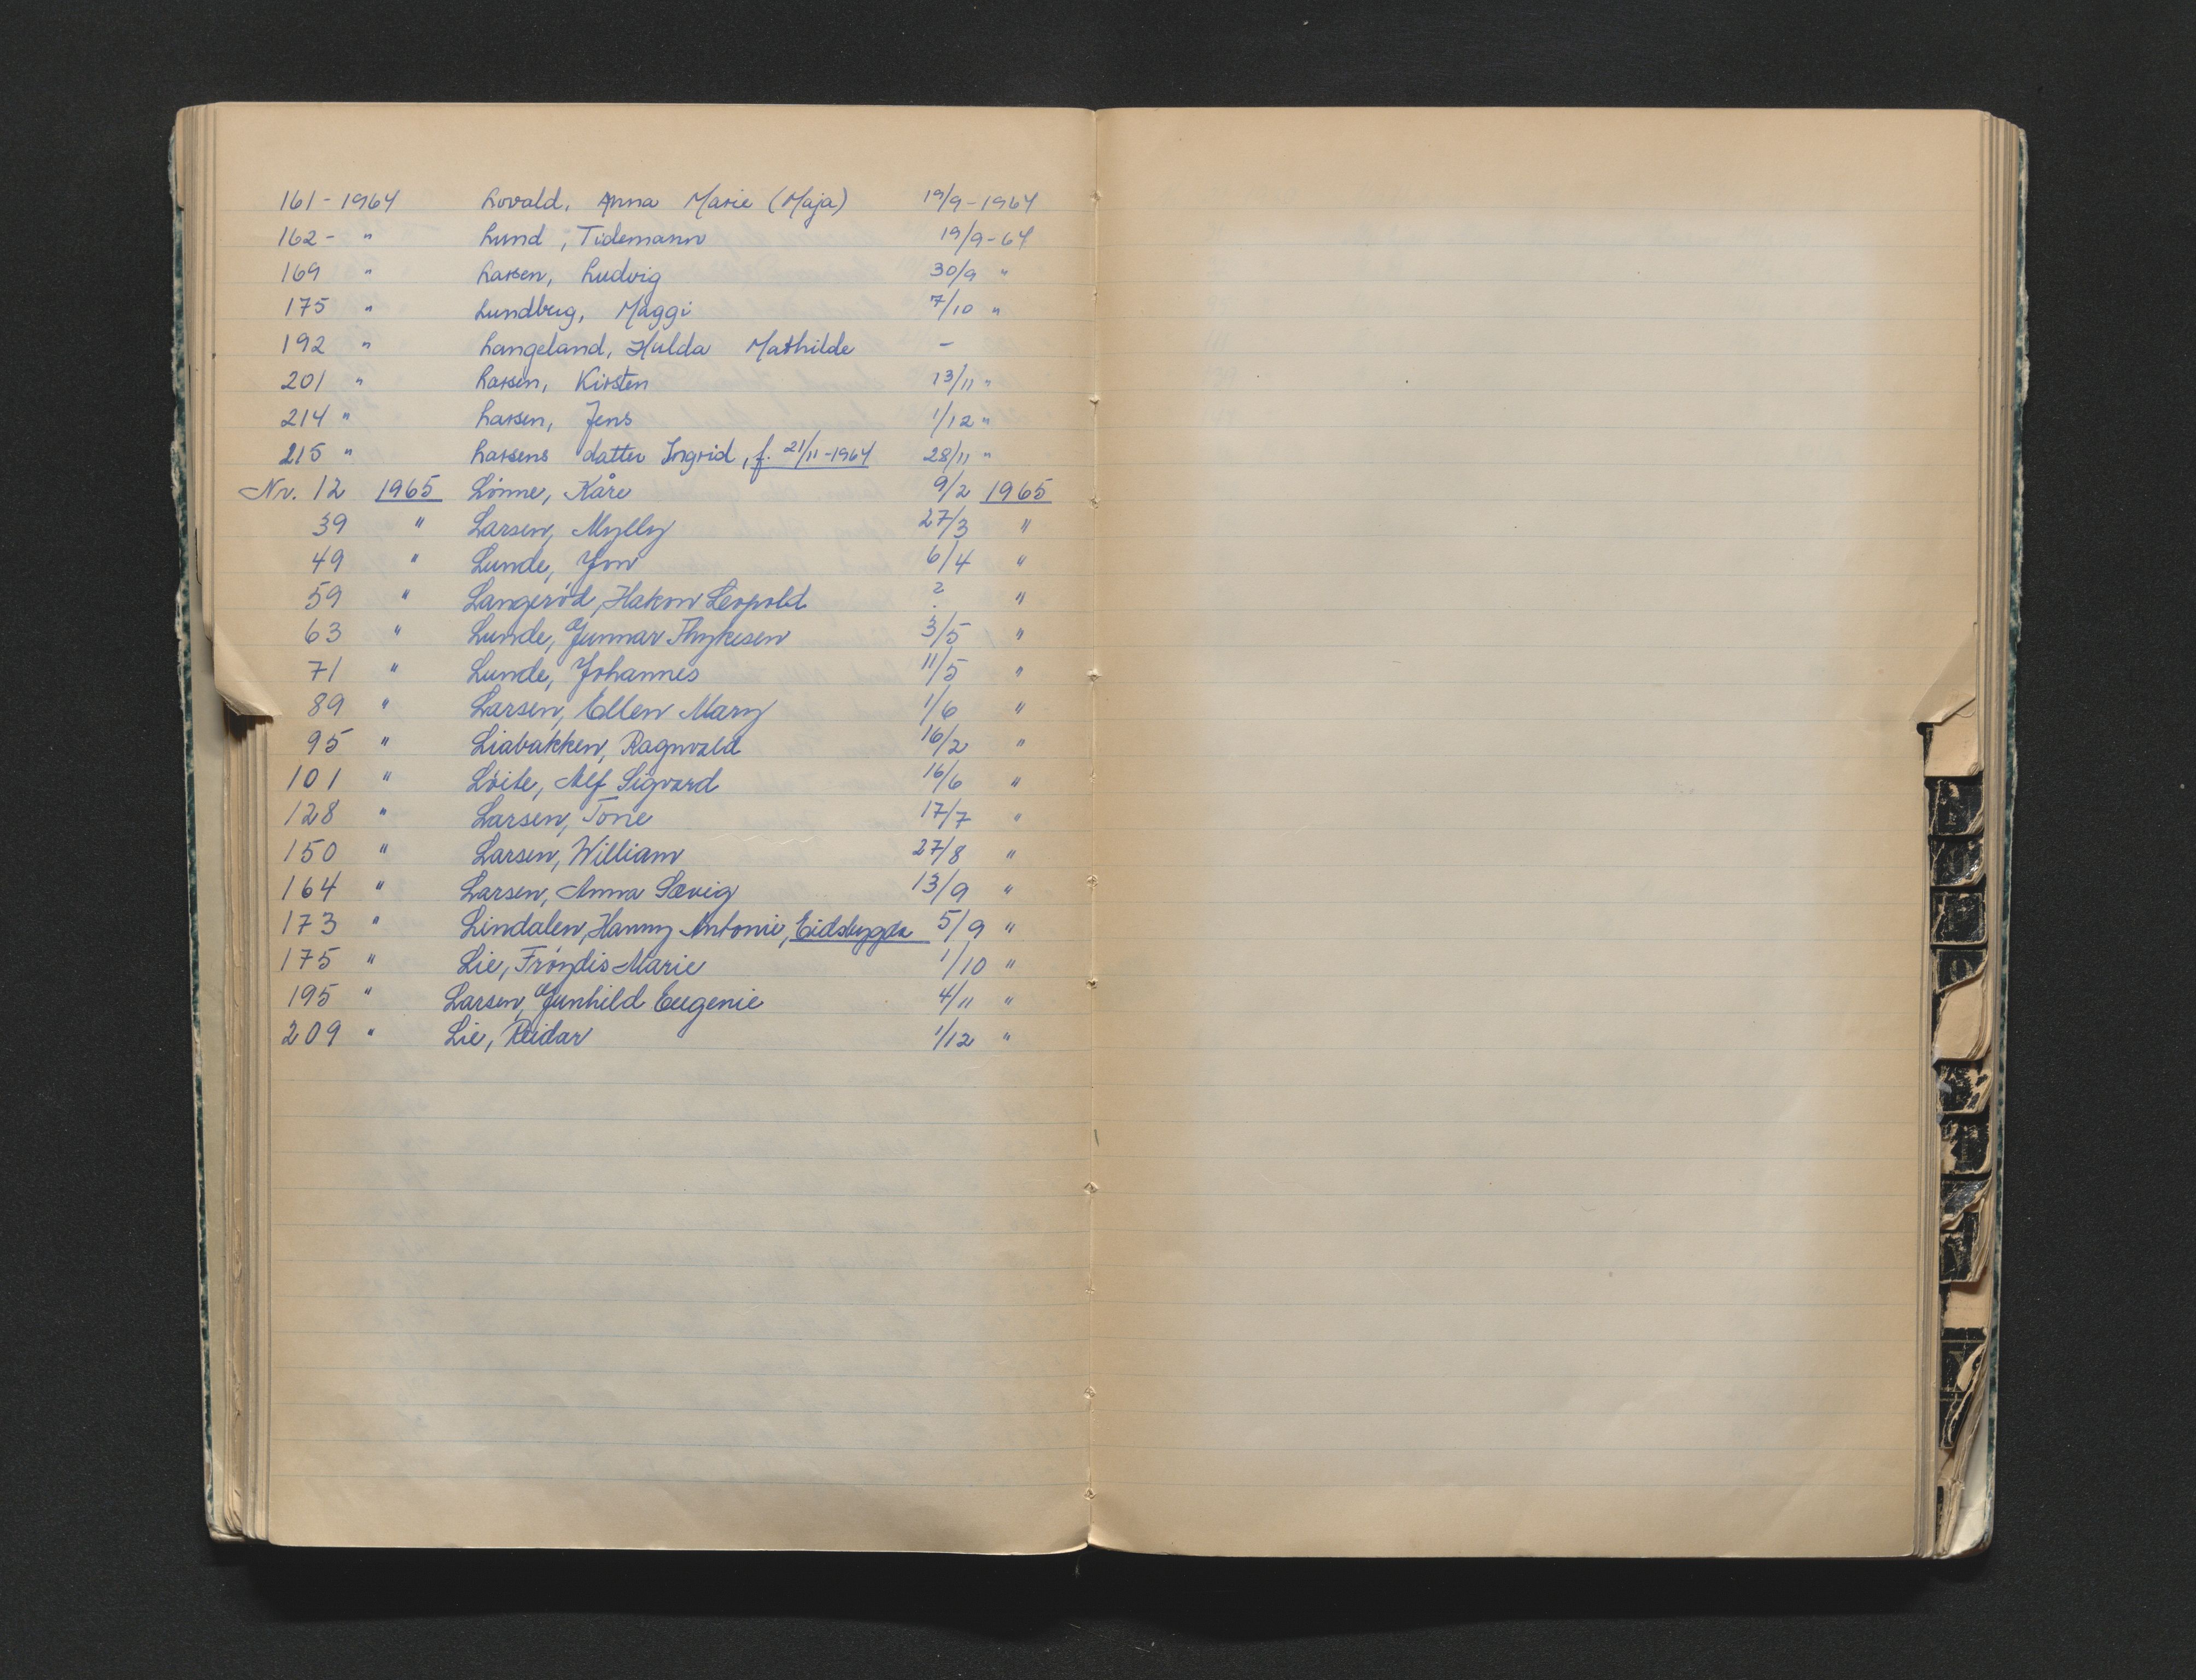 161 - 1964 Lovald, Anna Marie (Maja) 19/9 - 1964
162 - " Lund, Tidemann 19/9 - 64
169 " Larsen, Ludvig 30/9 "
175 " Lundbrg, Maggi 7/10 "
192 " Langeland, Hulda Mathilde -
201 " Larsen, Kirsten 13/11 "
214 " Larsen, Jens 1/12 "
215 " Larsens datter Ingrid, f. 21/11 - 1964 28/11 "
Nr. 12 1965 Lönne, Kåre 9/2 1965
39 " Larsen, Mylly 27/3 "
49 " Lunde, Jon 6/4 "
59 " Langeröd, Hakon Leopold ? "
63 " Lunde, Gunnar Thykesen 3/5 "
71 " Lunde, Johannes 11/5 "
89 " Larsen, Ellen Mary 1/6 "
95 " Liabakken, Ragnvald 16/2 "
101 " Löite, Alf Sigvard 16/6 "
128 " Larsen, Tone 17/7 "
150 " Larsen, William 27/8 "
164 " Larsen, Anna Sævig 13/9 "
173 " Lindalen, Hanny Antonie, Eidsbygda 5/9 "
175 " Lie, Fröydis Marie 1/10 "
195 " Larsen, Gunhild Eugenie 4/11 "
209 " Lie, Reidar 1/12 "